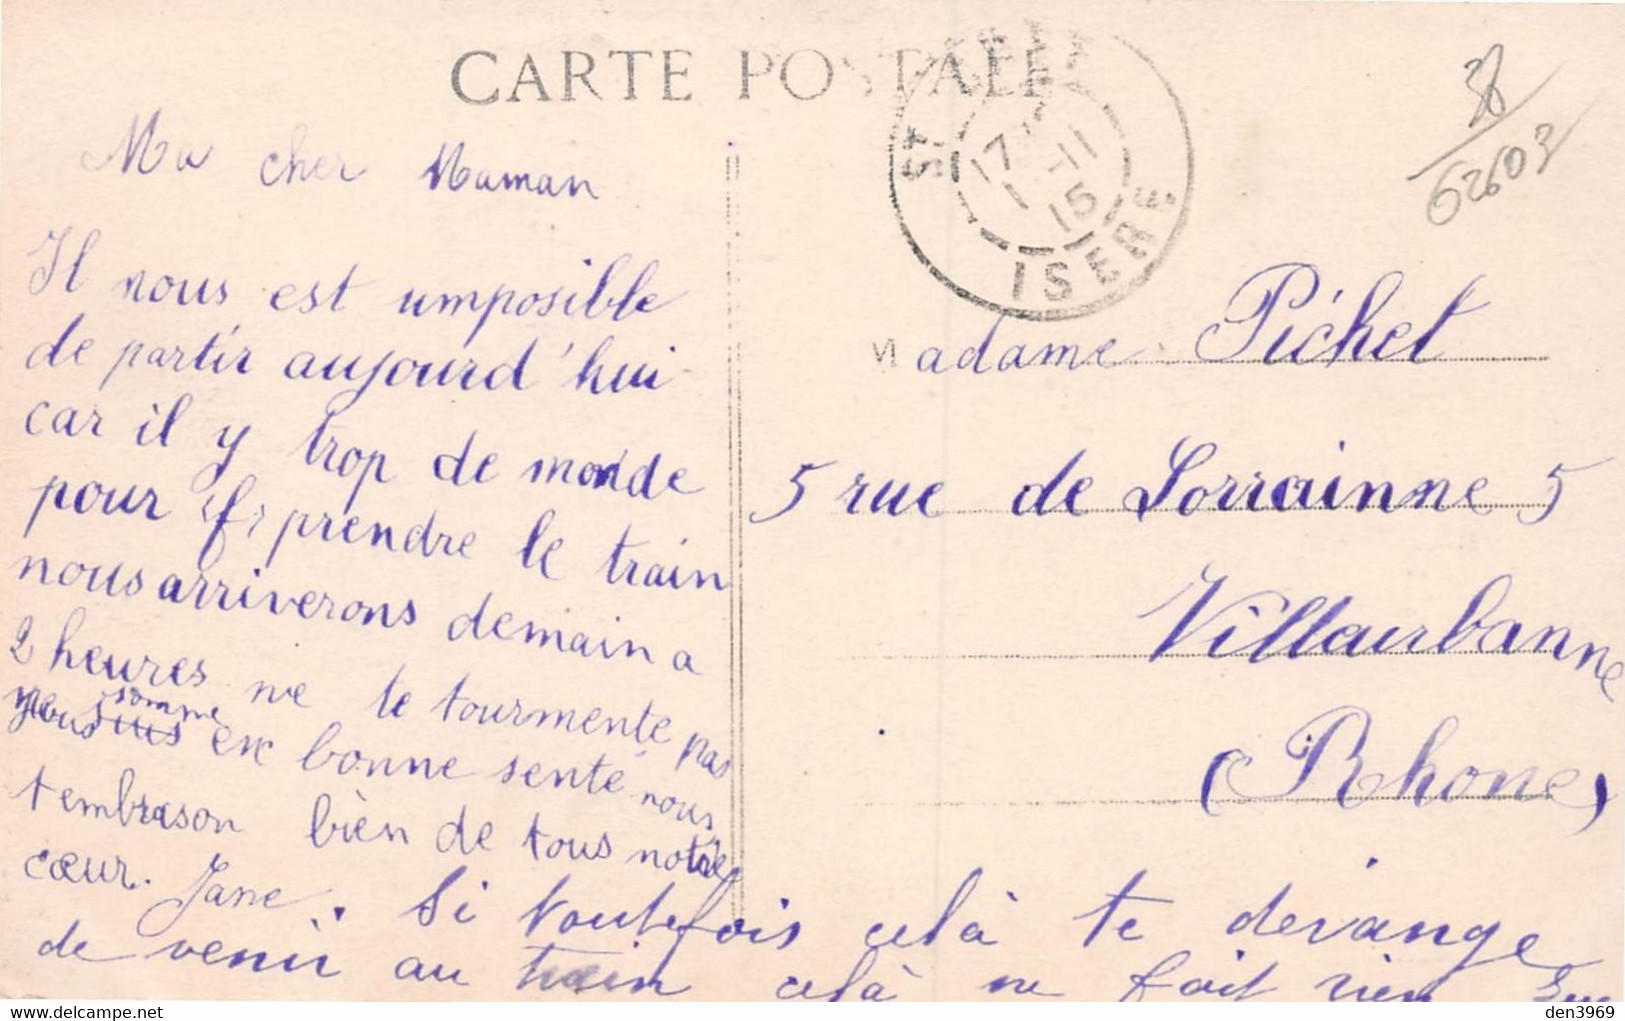 CARTE POSTALE
Ma cher Maman
Il nous est umposible
de partir aujourd'hui
car il y trop de monde
pour prendre le train
nous arriverons demain a
2 heures ne te tourmente pas
nous somme en bonne senté nous
t embrason bien de tous notre
cœur. Jane. Si toutefois celà te derange
de venir au train celà ne fait rien
ST
17
1-11
15
ISERE
38
62603
Madame Pichet
5 rue de Lorrainne 5
Villeurbanne
(Rhone)
www.delcampe.net
den3969